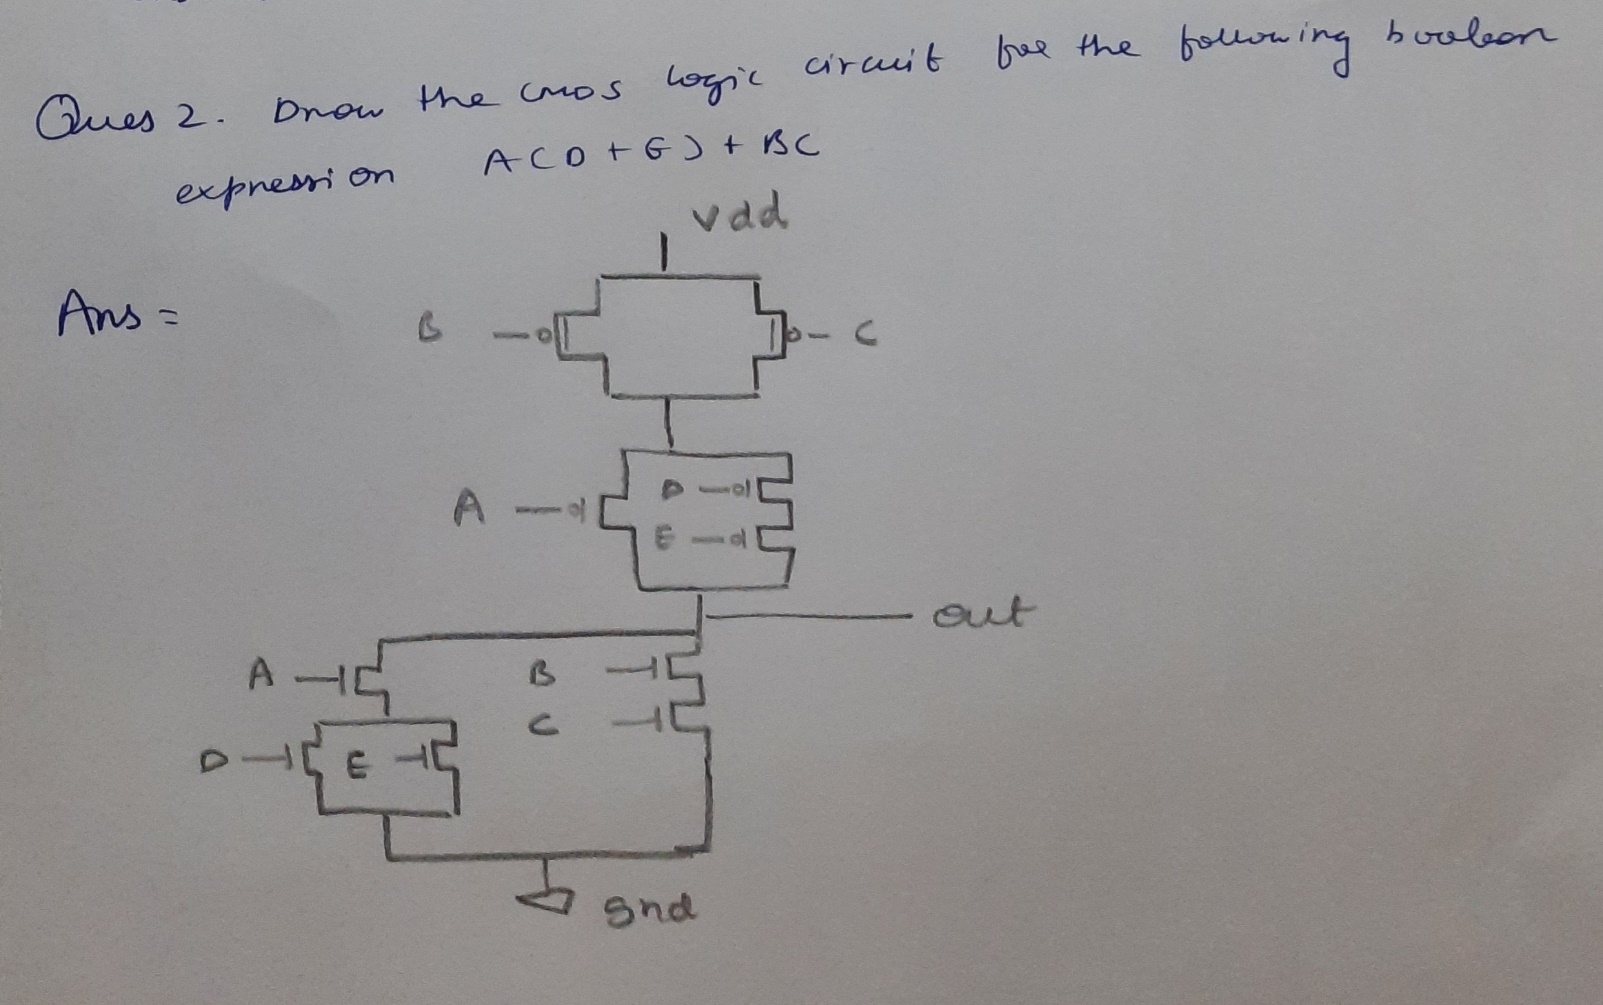 Ques 2. Draw the cmos logic circuit for the following boolean
expression A(D+G)+BC
Vdd
Ans =
B C
A D
E
out
A B
C
D E
gnd